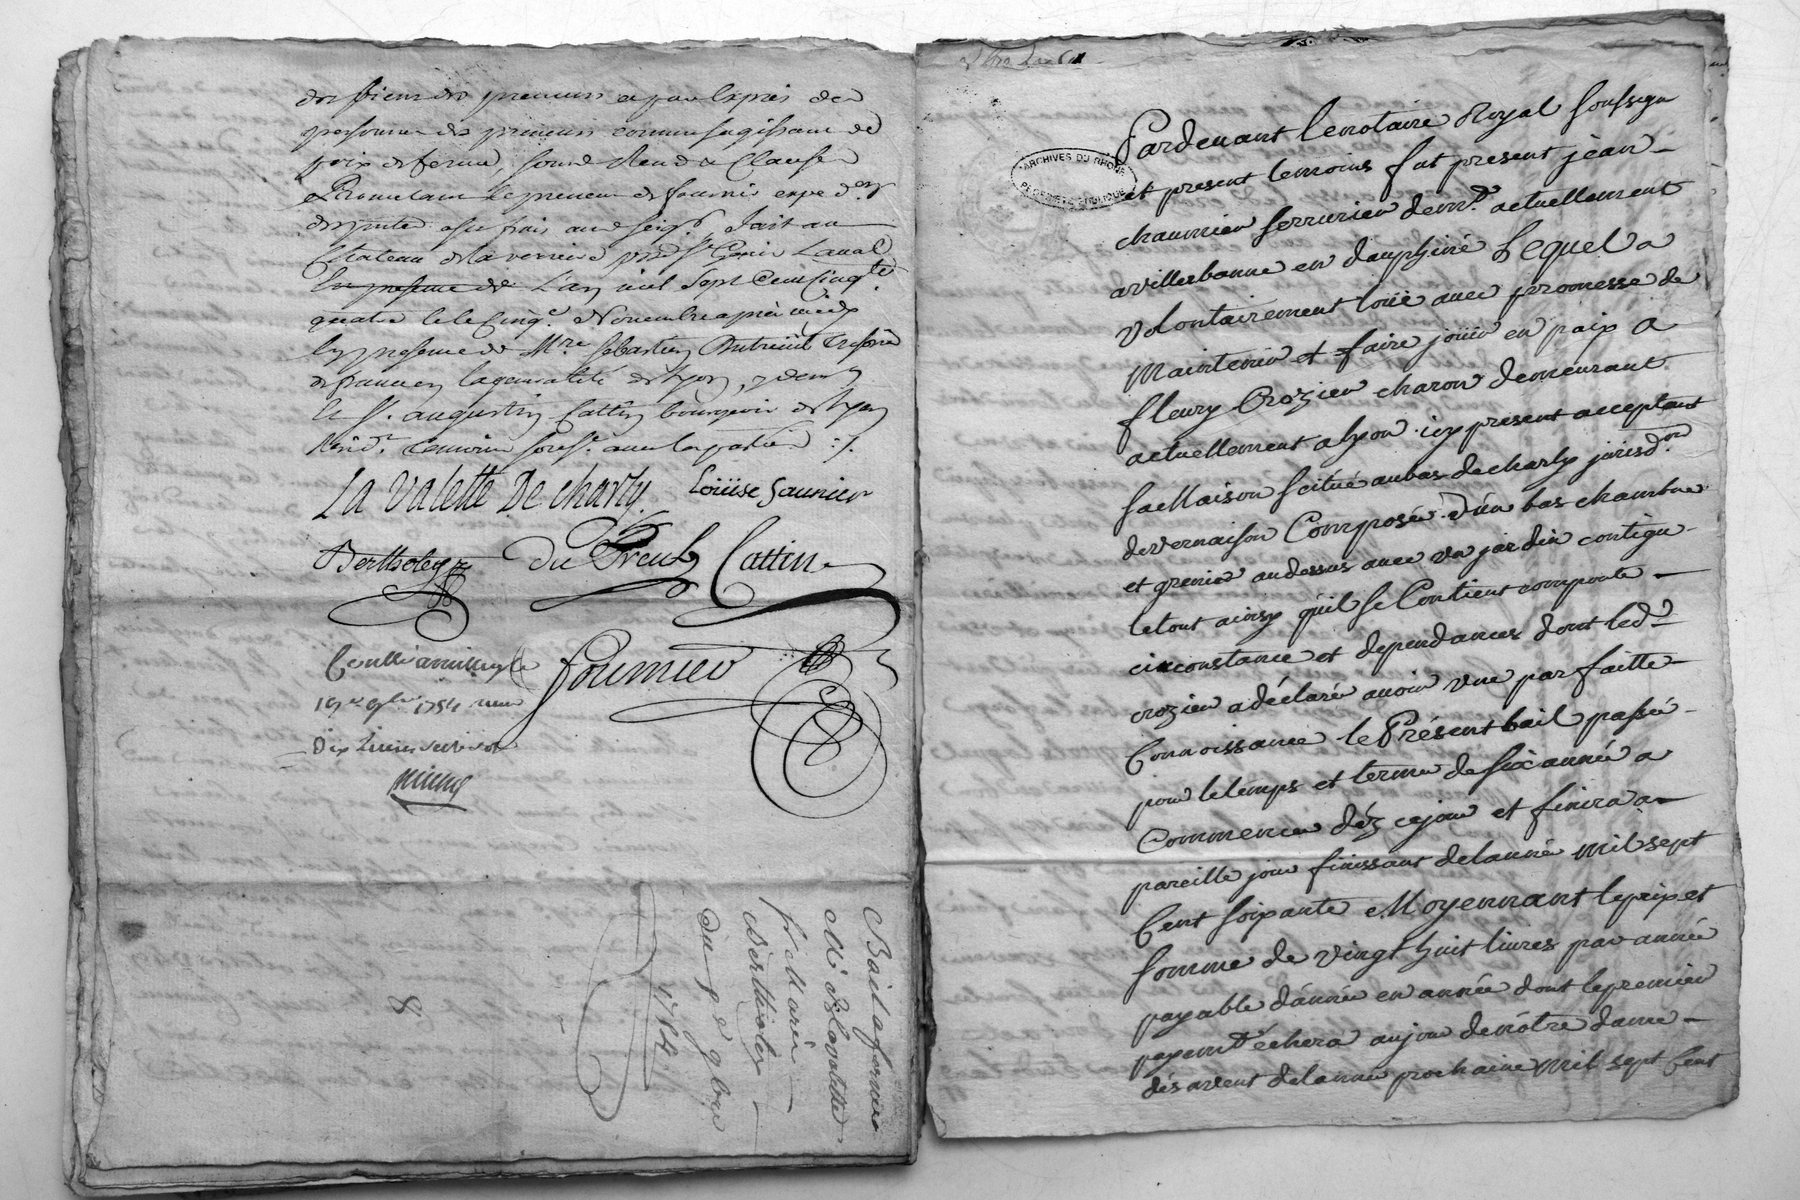 des biens des preneurs et par exprés de la
personne des preneurs comme sagissant de
prix de ferme, sous Rend.on & Clauses
& Promettant le preneur de fournir expe.on
à ses frais aud. seigr. fait au
Chateau de la verriere St Genis Laval
L'an mil sept cent cinqte
quatre le cinqe. Novembre aprés midy
En presence de Mre. Sebastien Dutreüil Tresorier
de france en la generalité de Lyon, & de
le Sr. augustin Cattin bourgeois de Lyon
temoins sousse. avec les parties
La Valette De Charly. Loüise Saunier
Bertholey Du Treul Cattin
fournier
Controllé a millery le
1754 reçu
Dix Livres
Bail a ferme
Mr De Lavalette
Ve. Marie
Bertholey
du 5e 9bre
1754
8
Pardevant le notaire Royal soussigné
ARCHIVES DU RHONE
et present temoins fut present jèan
chaumier serrurier demt. actuellement
a villeurbanne en dauphiné Lequel a
volontairement loüé avec promesse de
maintenir et faire joüir en paix a
fleury Crozier charon demeurant
actuellement a lyon icy present acceptant
sa Maison scitué au bas de charly jurisd.on
de vernaison Composée d'un bas chambre
et grenier au dessus avec un jardin contigu
le tout ainsy qu'il se Contient comporte
circonstance et dependances dont led.
crozier a déclaré avoir une parfaitte
Connoissance le Présent bail passé
pour le temps et terme de six année a
Commencer déz ce jour et finira a
pareille jour finissant de lannée mil sept
Cent soixante Moyennant le prix et
somme de vingt huit livres par année
payable d'année en année dont le premier
payemt. échera au jour de nôtre dame
dés avent de lannée prochaine mil sept Cent